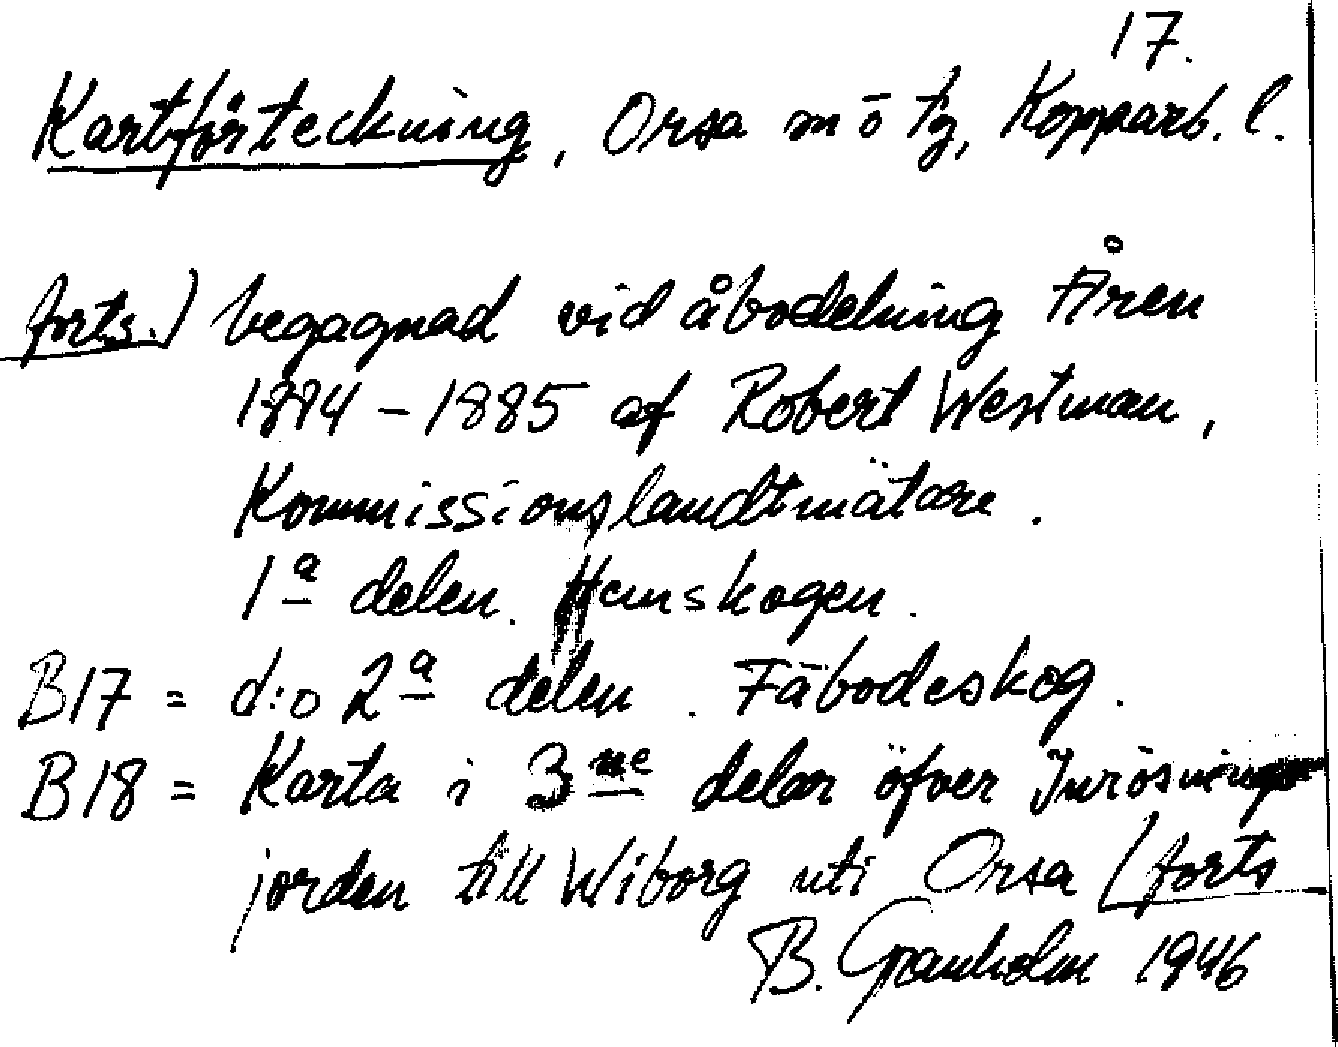 17.
Kartförteckning, Orsa m o tg, Kopparb. l.
forts.) begagnad vid åbodelning Åren
1884 – 1885 af Robert Westman,
Kommissionslandtmätare.
1a delen. Hemskogen.
B17 = d:o 2a delen. Fäbodeskog.
B18 = Karta i 3ne delar öfver Inrösnings
jorden till Wiborg uti Orsa (forts
B. Granholm 1946